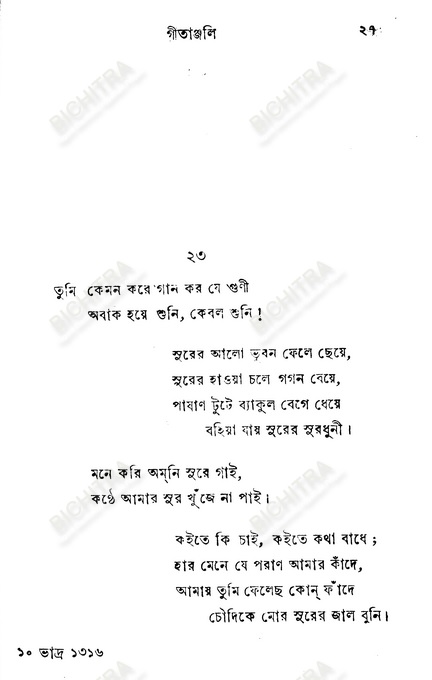 গীতাঞ্জলি ২৭
২৩
তুমি কেমন করে গান কর যে গুণী
অবাক হয়ে শুনি, কেবল শুনি!
সুরের আলো ভুবন ফেলে ছেয়ে,
সুরের হাওয়া চলে গগন বেয়ে,
পাষাণ টুটে ব্যাকুল বেগে ধেয়ে
বহিয়া যায় সুরের সুরধুনী।
মনে করি অম্‌নি সুরে গাই,
কণ্ঠে আমার সুর খুঁজে না পাই।
কইতে কি চাই, কইতে কথা বাধে;
হার মেনে যে পরাণ আমার কাঁদে,
আমায় তুমি ফেলেছ কোন্ ফাঁদে
চৌদিকে মোর সুরের জাল বুনি।
১০ ভাদ্র ১৩১৬
BICHITRA
BICHITRA
BICHITRA
BICHITRA
BICHITRA
BICHITRA